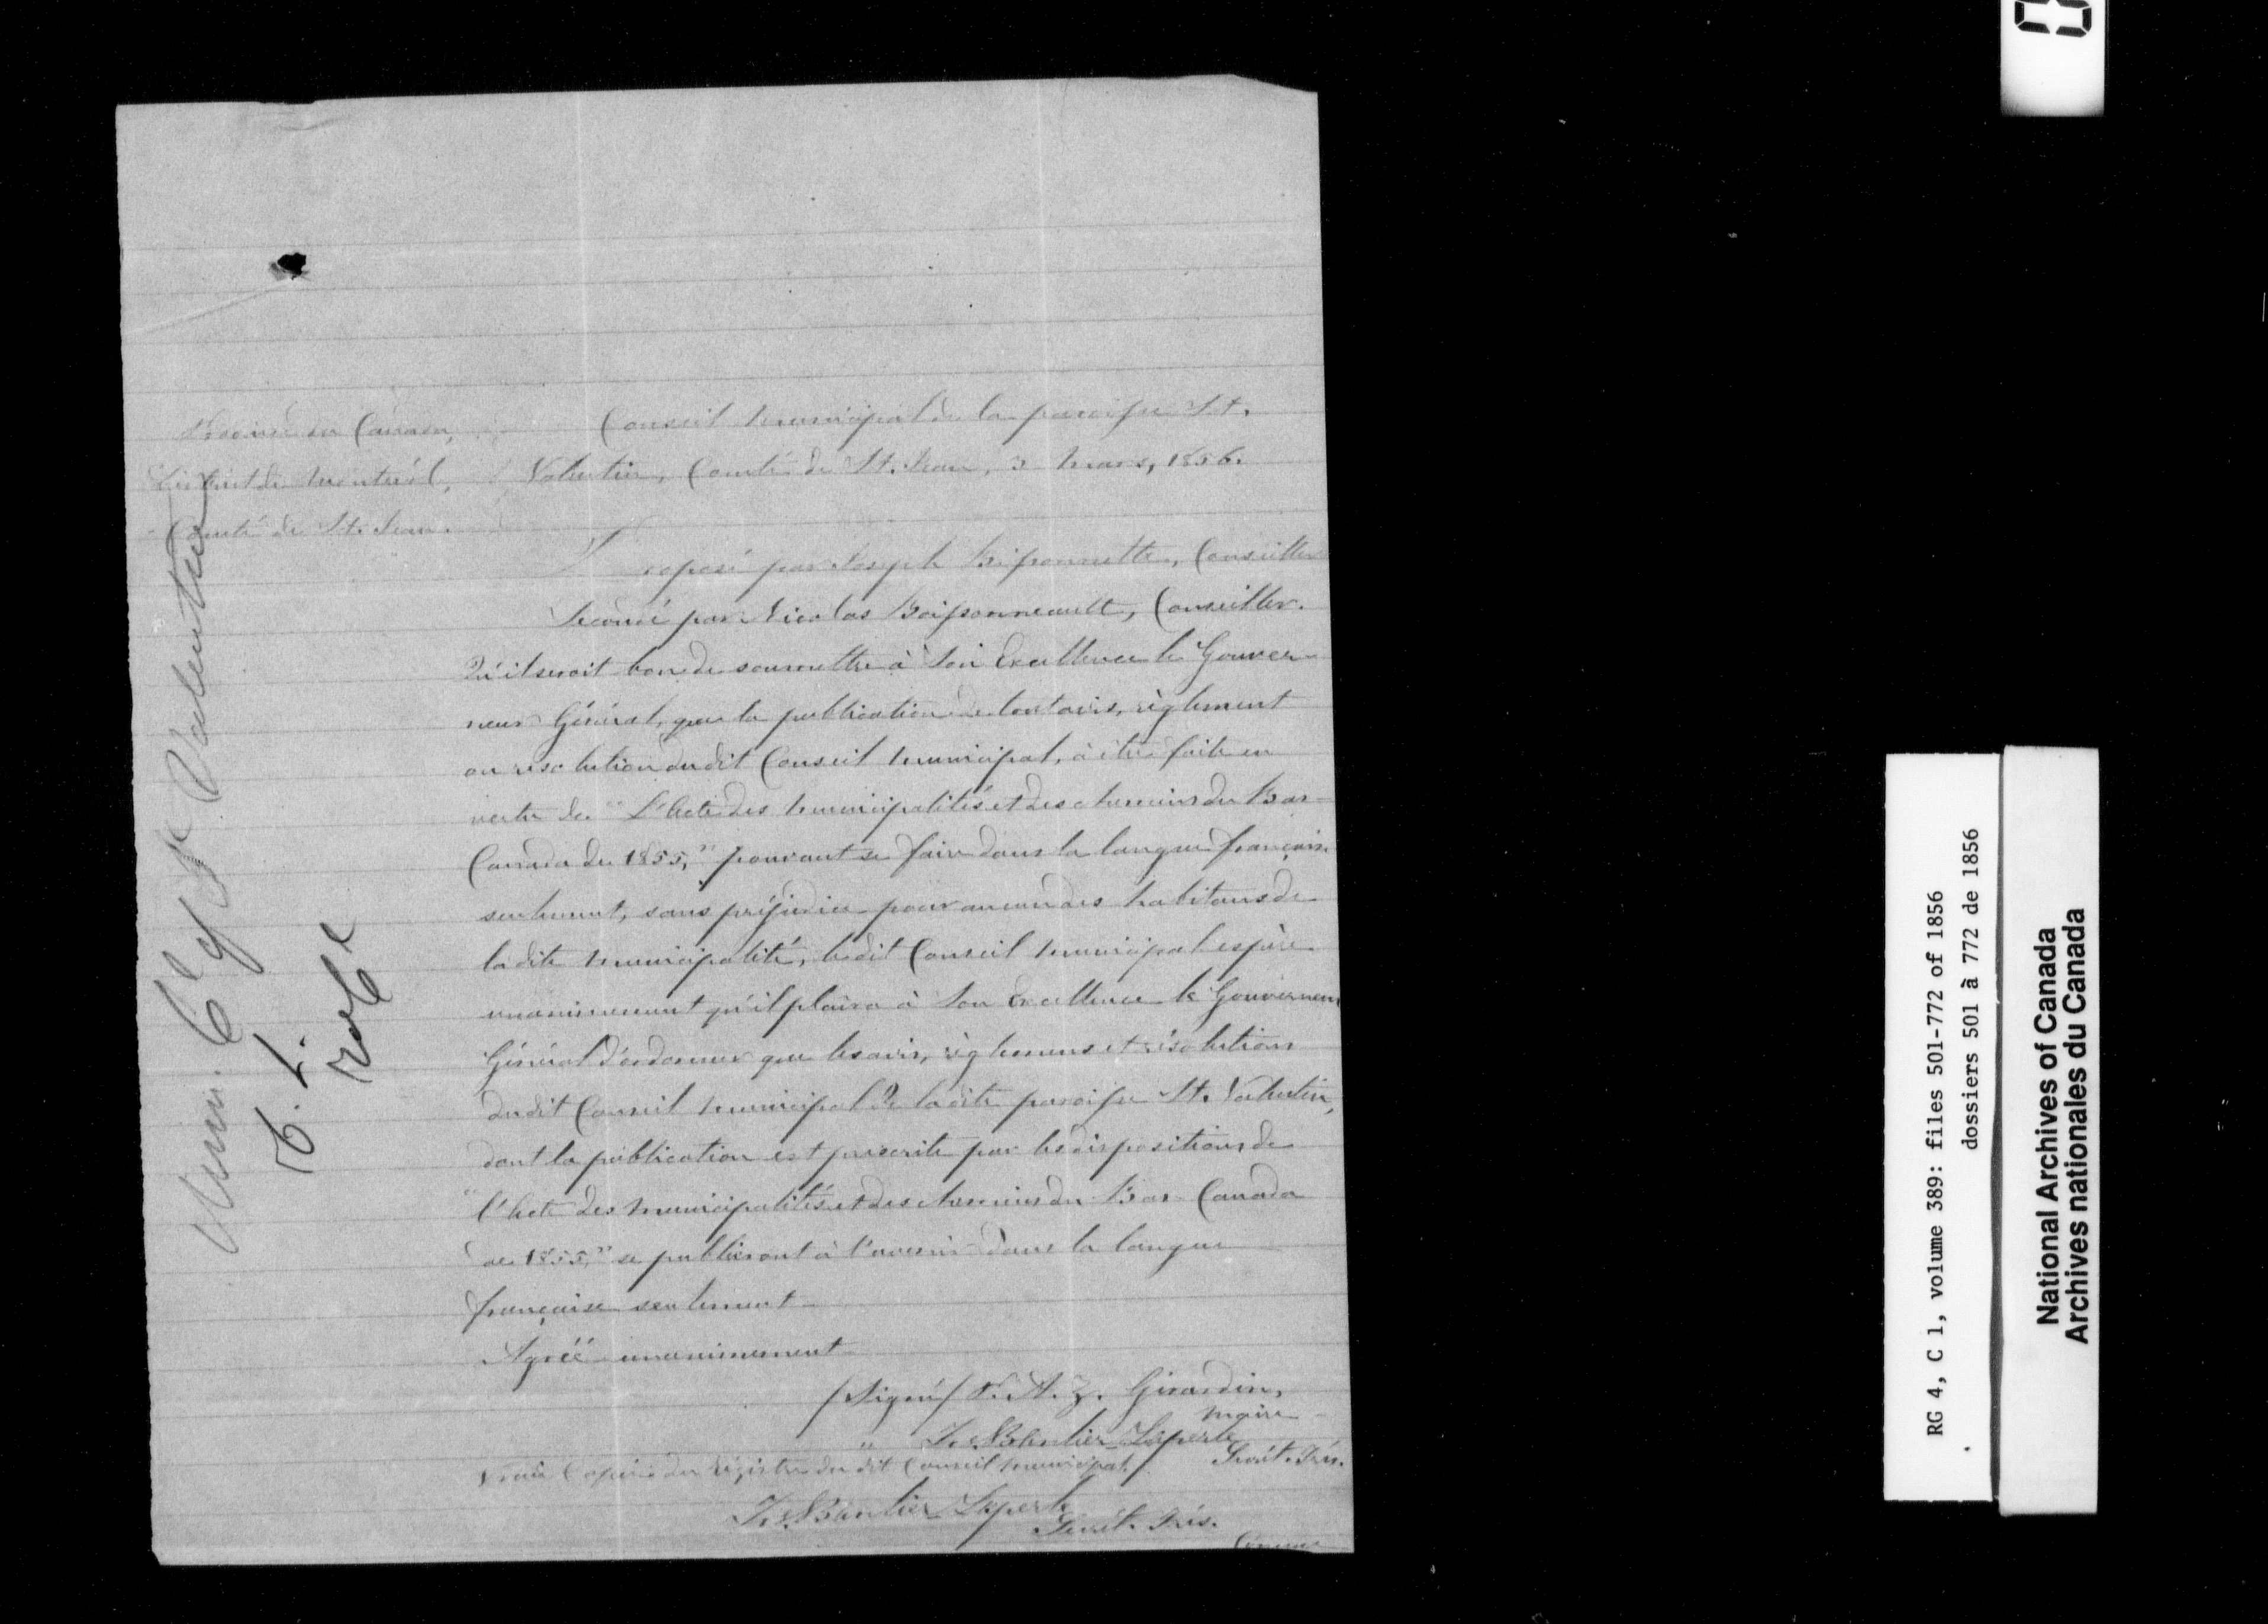 Province du Canada,
District de Montréal,
Comté de St. Jean.
Conseil municipal de la paroisse St.
Valentin, Comté de St. Jean, 3 mars, 1856.
Proposé par Joseph Bissonnette, Conseiller
Secondé par Nicolas Boissonneault, Conseiller.
Qu'il seroit bon de soumettre à Son Excellence le Gouver-
neur Général, que la publication de tout avis, règlement
ou résolution du dit Conseil municipal, à être faite en
vertu de "L'Acte des municipalités et des chemins du Bas-
Canada de 1855," pouvant se faire dans la langue française
seulement, sans préjudice pour aucun des habitans de
la dite municipalité, le dit Conseil municipal espère
unanimement qu'il plaira à Son Excellence le Gouverneur
Général d'ordonner que les avis, règlemens et résolutions
du dit Conseil municipal de la dite paroisse St. Valentin,
dont la publication est prescrite par les dispositions de
"l'Acte des municipalités et des chemins du Bas Canada
de 1855," se publieront à l'avenir dans la langue
française seulement
Agréé unanimement
/Signé/ F. A. Z. Girardin,
maire
" Laperle
Secrét. Trés.
Vraie Copie du régistre du dit Conseil municipal.
Laperle
Secrét. Trés.
Munic. Cl of Valentin
RG 4, C 1, volume 389: files 501-772 of 1856
dossiers 501 à 772 de 1856
National Archives of Canada
Archives nationales du Canada